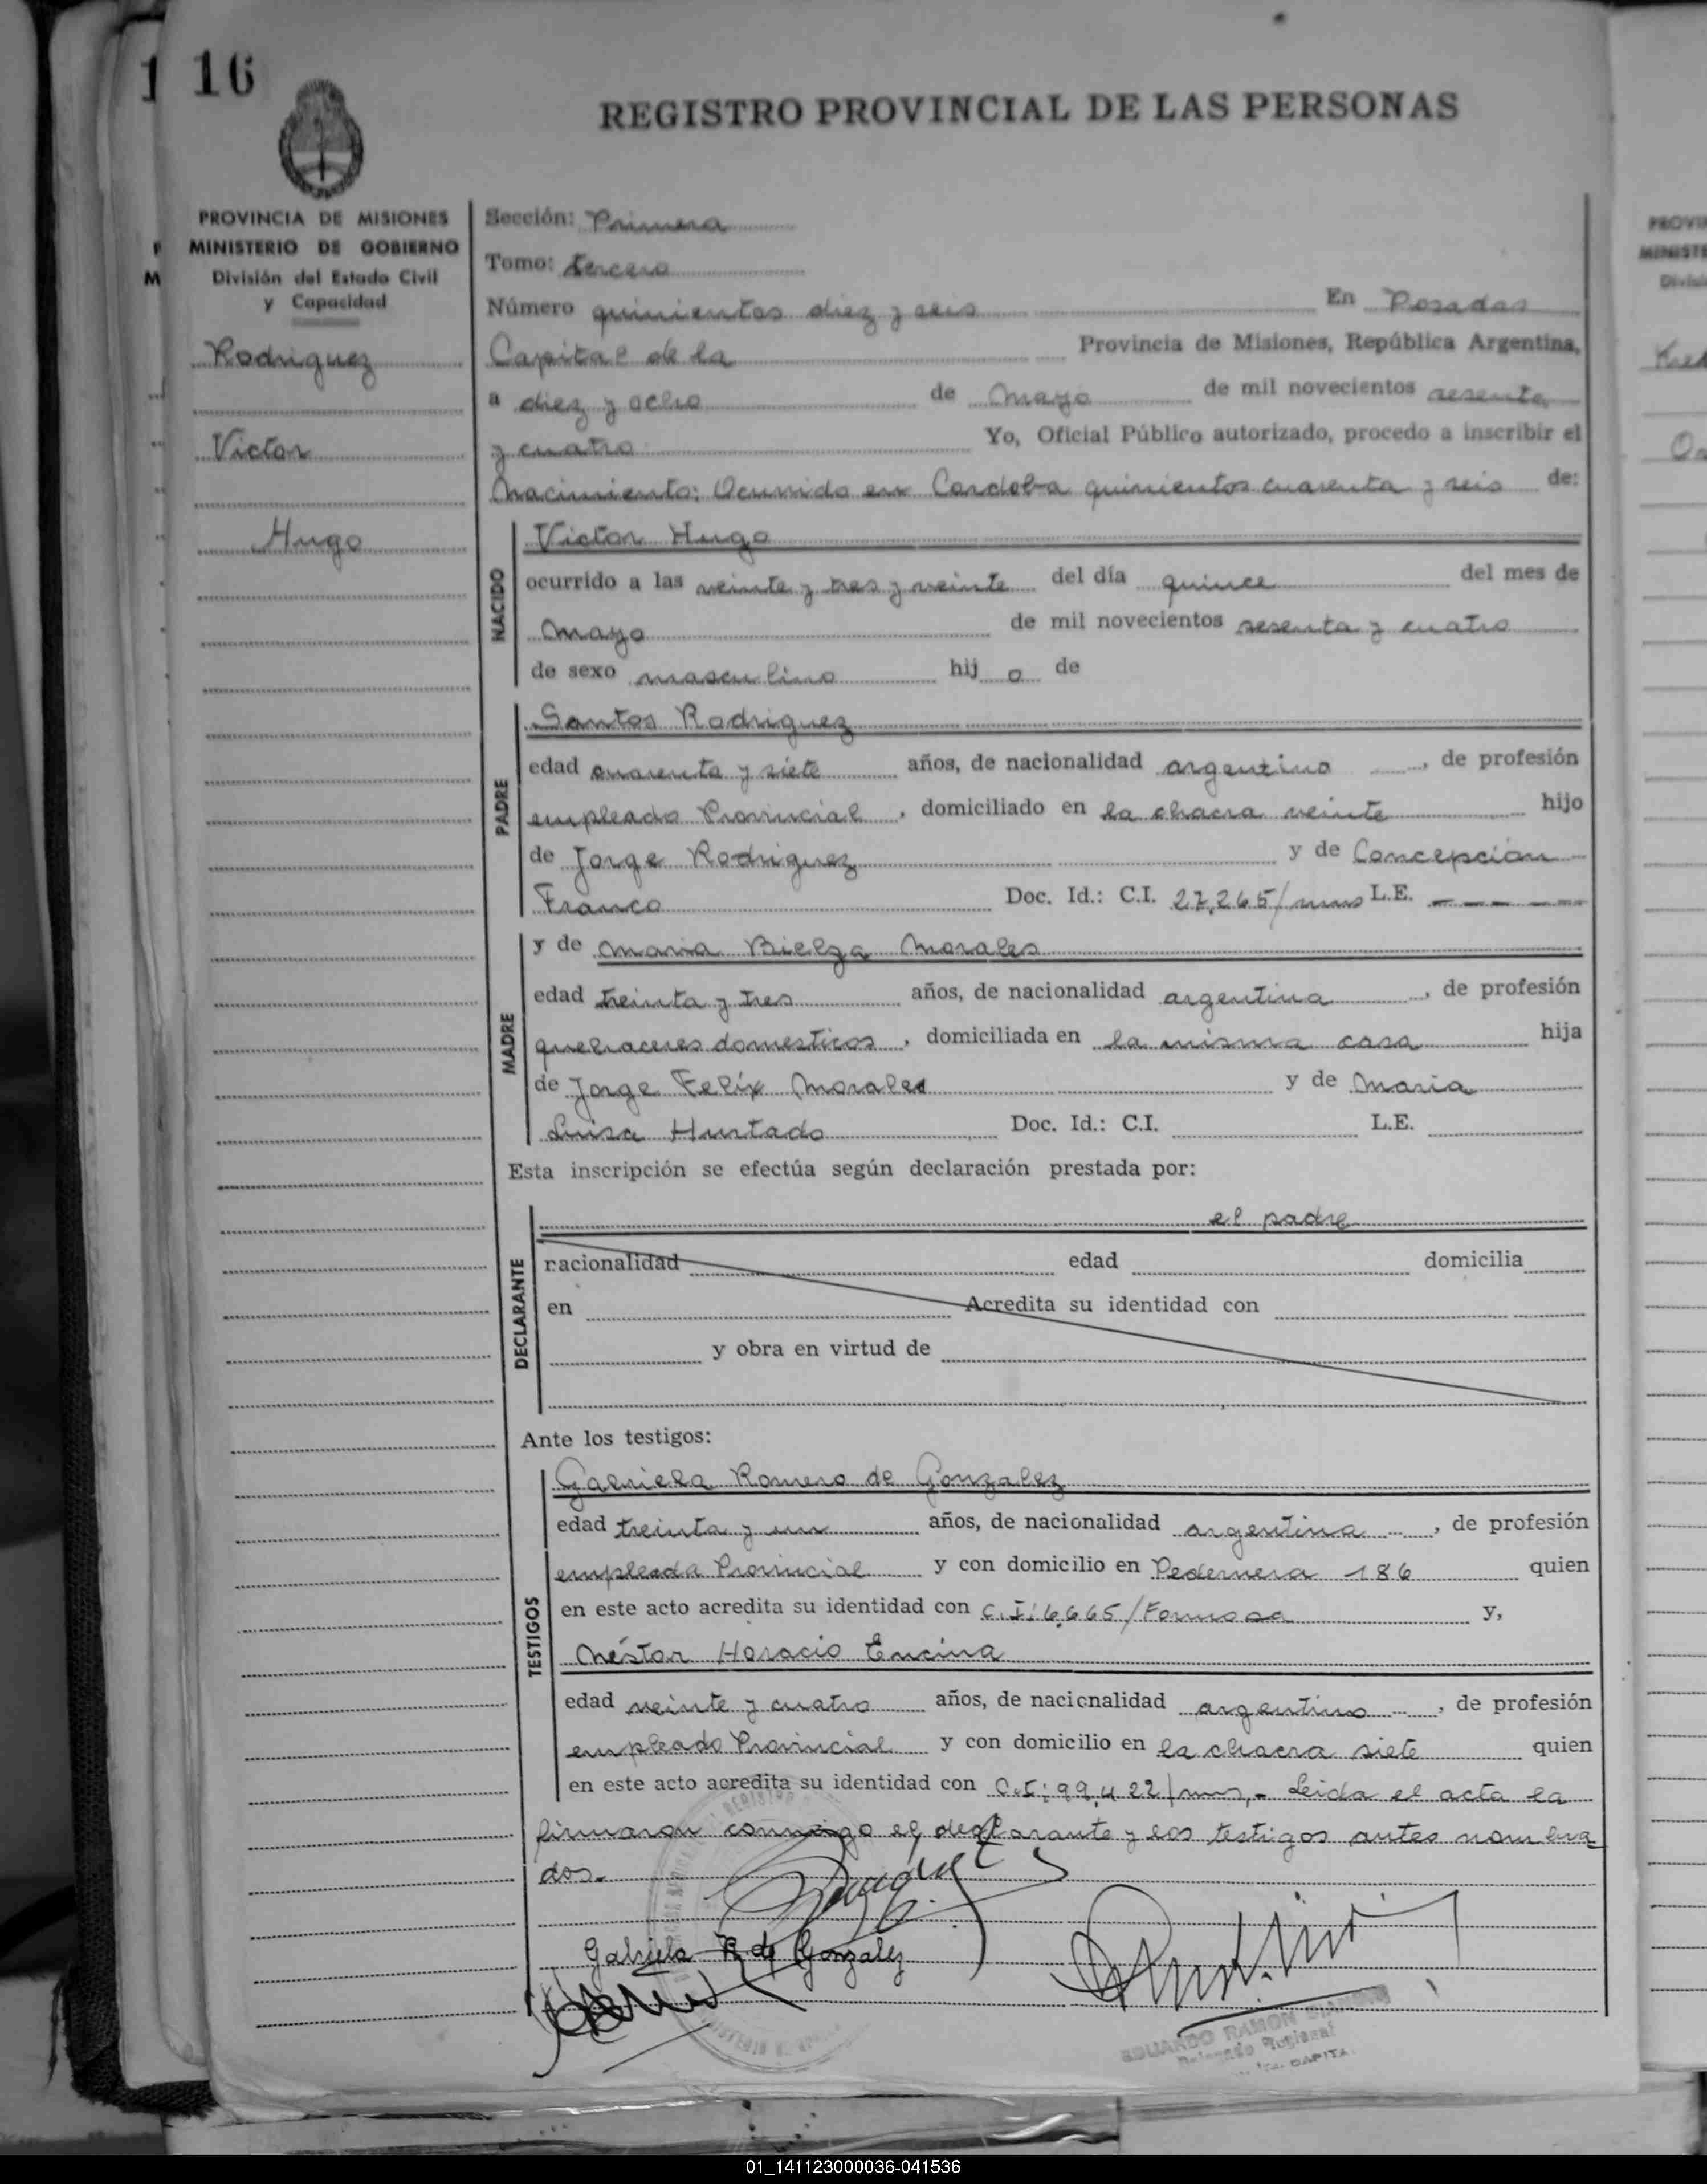 16
REGISTRO PROVINCIAL DE LAS PERSONAS
PROVINCIA DE MISIONES
MINISTERIO DE GOBIERNO
División del Estado Civil
y Capacidad
Rodriguez
Victor
Hugo
Sección: Primera
Tomo: tercero
Número quinientos diez y seis En Posadas
Capital de la Provincia de Misiones, República Argentina,
a diez y ocho de Mayo de mil novecientos sesenta
y cuatro Yo, Oficial Público autorizado, procedo a inscribir el
Nacimiento: Ocurrido en Cordoba quinientos cuarenta y seis de:
NACIDO
Victor Hugo
ocurrido a las veinte y tres y veinte del día quince del mes de
Mayo de mil novecientos sesenta y cuatro
de sexo masculino hij o de
PADRE
Santos Rodriguez
edad cuarenta y siete años, de nacionalidad argentino, de profesión
empleado Provincial, domiciliado en la chacra veinte hijo
de Jorge Rodriguez y de Concepción
Franco Doc. Id.: C.I. 27,265/mnes L.E. — — — — —
MADRE
y de Maria Bielga Morales
edad treinta y tres años, de nacionalidad argentina, de profesión
quehaceres domesticos, domiciliada en la misma casa hija
de Jorge Felix Morales y de Maria
Luisa Hurtado Doc. Id.: C.I. L.E.
Esta inscripción se efectúa según declaración prestada por:
DECLARANTE
el padre
nacionalidad edad domicilia
en Acredita su identidad con
y obra en virtud de
Ante los testigos:
TESTIGOS
Gabriela Romero de Gonzalez
edad treinta y un años, de nacionalidad argentina, de profesión
empleada Provincial y con domicilio en Pedernera 186 quien
en este acto acredita su identidad con C.I: 6,665/Formosa y,
Néstor Horacio Encina
edad veinte y cuatro años, de nacionalidad argentino, de profesión
empleado Provincial y con domicilio en la chacra siete quien
en este acto acredita su identidad con C.I: 99,422/mns,- Leida el acta la
firmaron conmigo el declarante y los testigos antes nombra
dos.-
Gabriela R. de Gonzalez
EDUARDO RAMON
Delegado Regional
CAPITAL
01_141123000036-041536